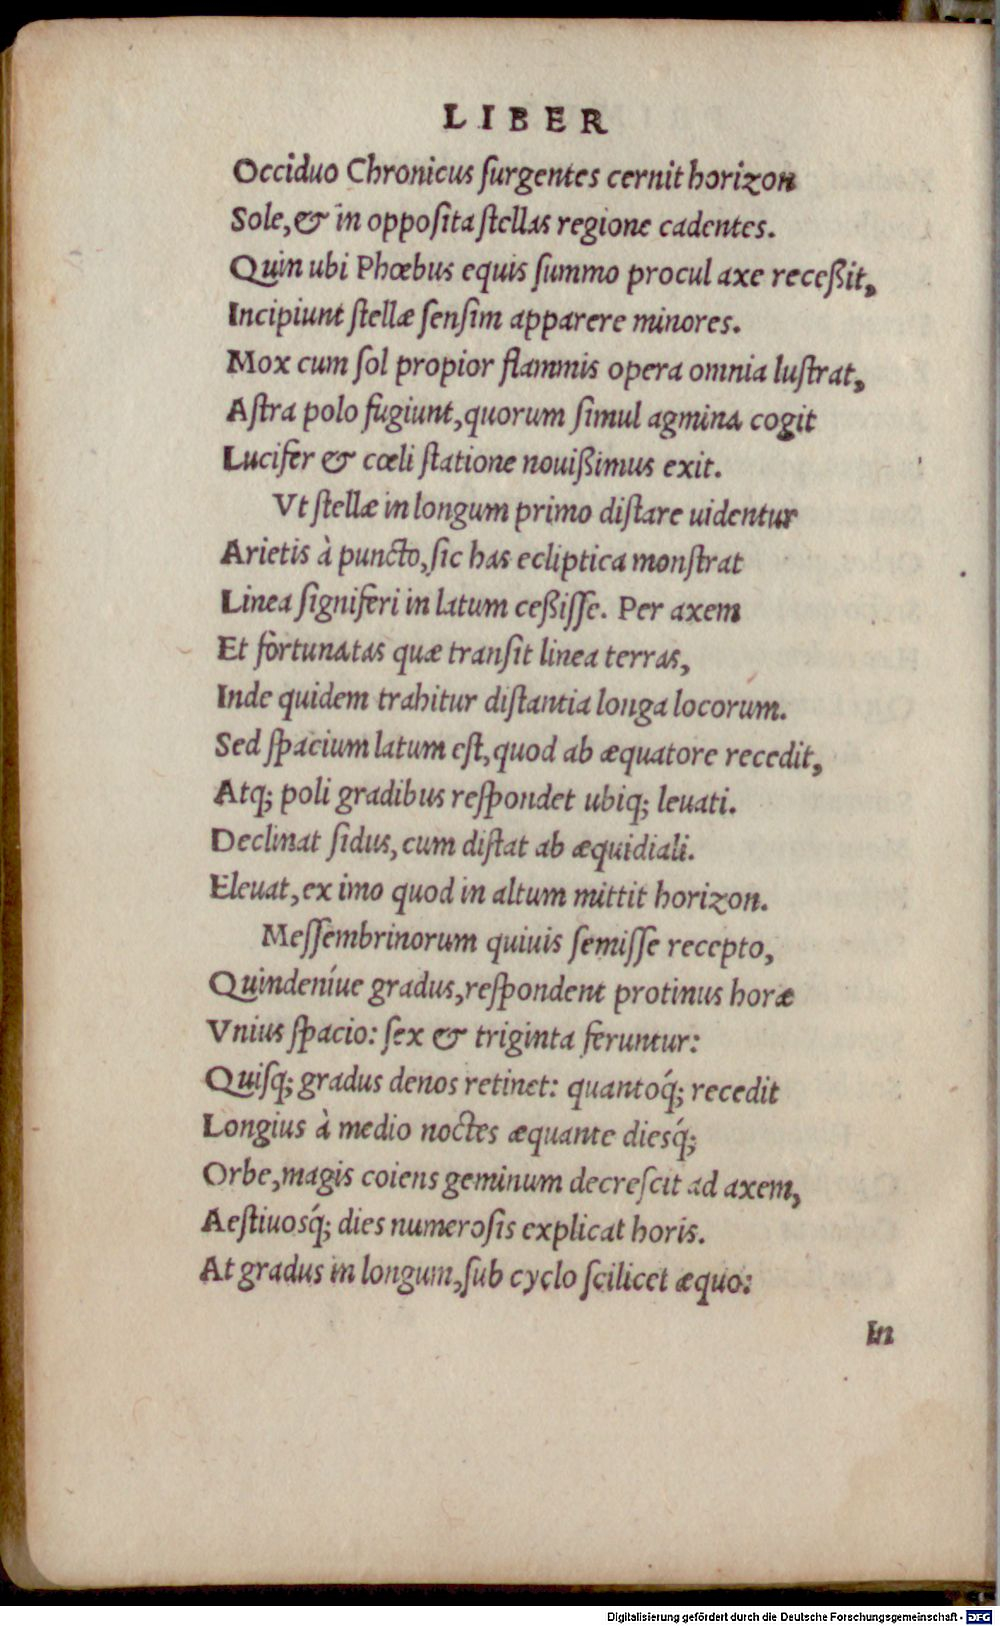 LIBER
Occiduo Chronicus ſurgentes cernit horizon
Sole, & in oppoſita ſtellas regione cadentes.
Quin ubi Phœbus equis ſummo procul axe receßit,
Incipiunt ſtellæ ſenſim apparere minores.
Mox cum ſol propior flammis opera omnia luſtrat,
Aſtra polo fugiunt, quorum ſimul agmina cogit
Lucifer & cœli ſtatione nouißimus exit.
Vt ſtellæ in longum primo diſtare uidentur
Arietis à puncto, ſic has ecliptica monſtrat
Linea ſigniferi in latum ceßiſſe. Per axem
Et fortunatas quæ tranſit linea terras,
Inde quidem trahitur diſtantia longa locorum.
Sed ſpacium latum eſt, quod ab æquatore recedit,
Atq; poli gradibus reſpondet ubiq; leuati.
Declinat ſidus, cum diſtat ab æquidiali.
Eleuat, ex imo quod in altum mittit horizon.
Meſſembrinorum quiuis ſemiſſe recepto,
Quindeníue gradus, reſpondent protinus horæ
Vnius ſpacio: ſex & triginta feruntur:
Quiſq; gradus denos retinet: quantoq́; recedit
Longius à medio noctes æquante diesq́;
Orbe, magis coiens geminum decreſcit ad axem,
Aeſtiuosq́; dies numeroſis explicat horis.
At gradus in longum, ſub cyclo ſcilicet æquo:
In
Digitalisierung gefördert durch die Deutsche Forschungsgemeinschaft - DFG